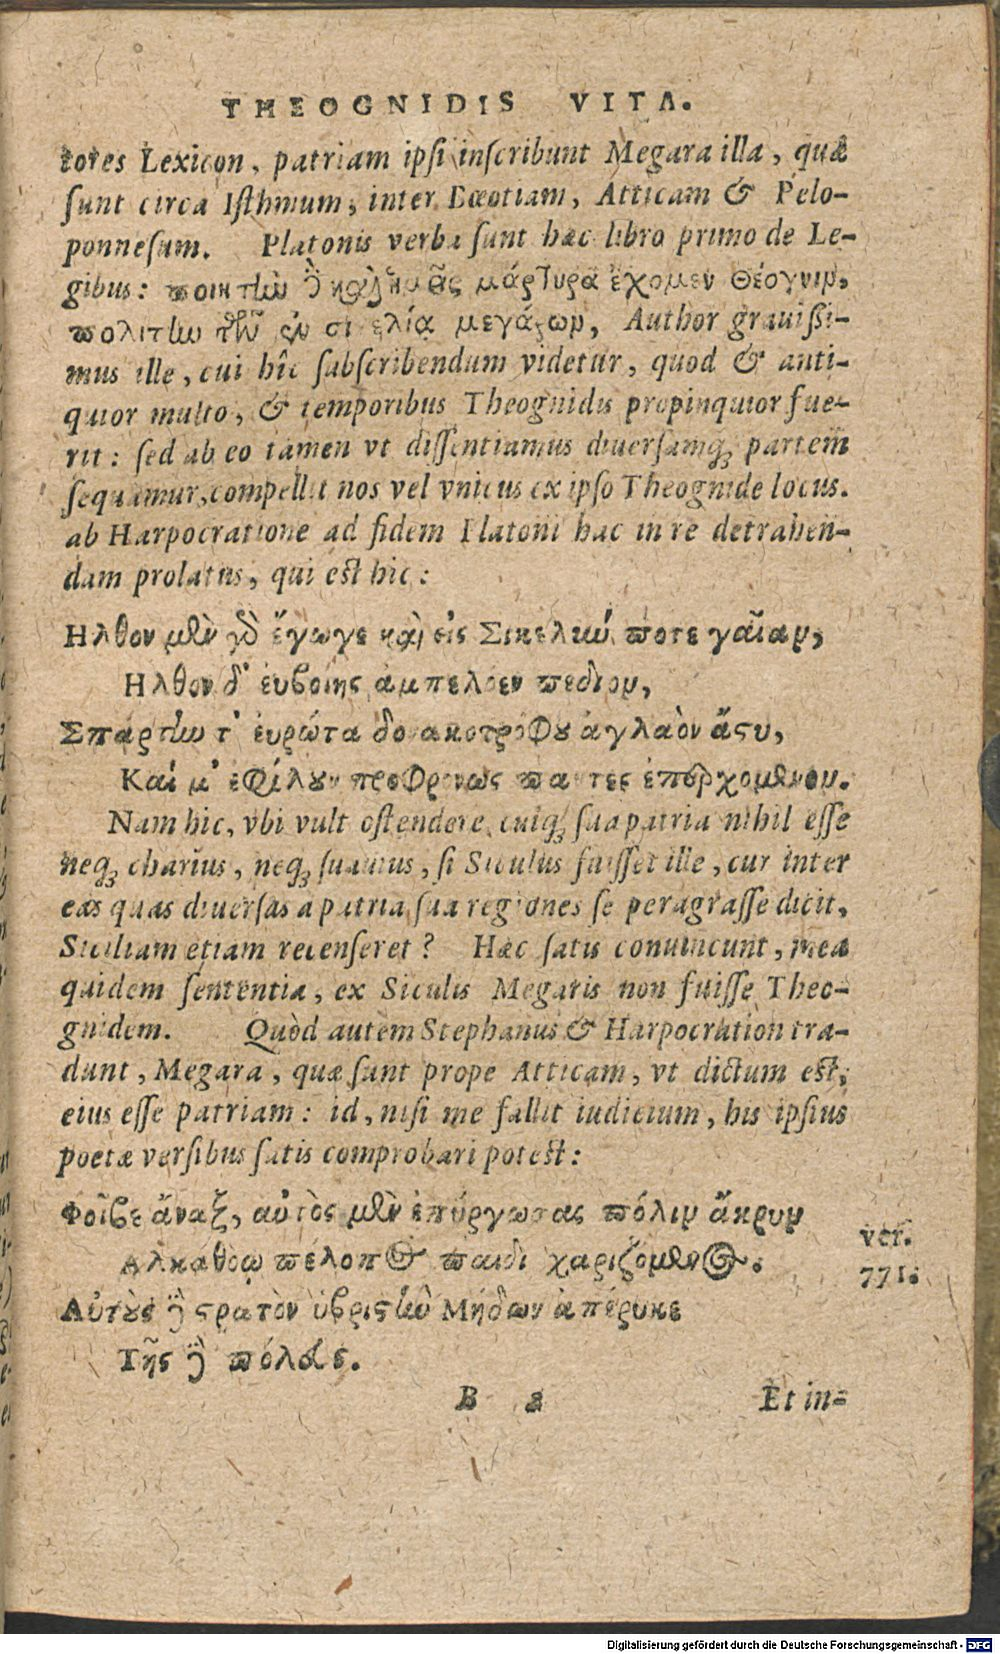 THEOGNIDIS VITA.
tores Lexicon, patriam ipsi inscribunt Megara illa, quæ
sunt circa Isthmum, inter Bœotiam, Atticam & Pelo-
ponnesum. Platonis verba sunt hæc libro primo de Le-
gibus: ποιητὴν δὲ καὶ ἡμεῖς μάρτυρα ἔχομεν Θέογνιν,
πολίτην τῶν ἐν σικελίᾳ μεγάρων, Author grauißi-
mus ille, cui hîc subscribendum videtur, quod & anti-
quior multo, & temporibus Theognidis propinquior fue-
rit: sed ab eo tamen vt dissentiamus diuersamq; partem
sequamur, compellit nos vel vnicus ex ipso Theognide locus.
ab Harpocratione ad fidem Platoni hac in re detrahen-
dam prolatus, qui est hic:
Ηλθον μὲν γὸ ἔγωγε καὶ εἰς Σικελικήν ποτε γαῖαν,
Ηλθον δ' ἐυβοίης ἀμπελόεν πεδίον,
Σπάρτην τ' ἐυρώτα δονακοτρόφου ἀγλαὸν ἄστυ,
Καί μ' ἐφίλουν προφρόνως παντες ἐπερχομενον.
Nam hic, vbi vult ostendere, cuiq; sua patria nihil esse
neq; charius, neq; suauius, si Siculus fuisset ille, cur inter
eas quas diuersas a patria sua regiones se peragrasse dicit,
Siciliam etiam recenseret? Hæc satis conuincunt, mea
quidem sententia, ex Siculis Megaris non fuisse Theo-
gnidem. Quòd autem Stephanus & Harpocration tra-
dunt, Megara, quæ sunt prope Atticam, vt dictum est,
eius esse patriam: id, nisi me fallit iudicium, his ipsius
poetæ versibus satis comprobari potest:
Φοῖβε ἄναξ, αὐτὸς μὲν ἐπύργωσας πόλιν ἄκρην
Αλκαθοῳ πέλοπος παιδι χαριζόμενος.
ver.
771.
Αὐτὸς δὲ στρατὸν ὑβριστὴν Μήδων ἀπέρυκε
Τῆς δὲ πόλεος.
B 2 Et in-
Digitalisierung gefördert durch die Deutsche Forschungsgemeinschaft - DFG